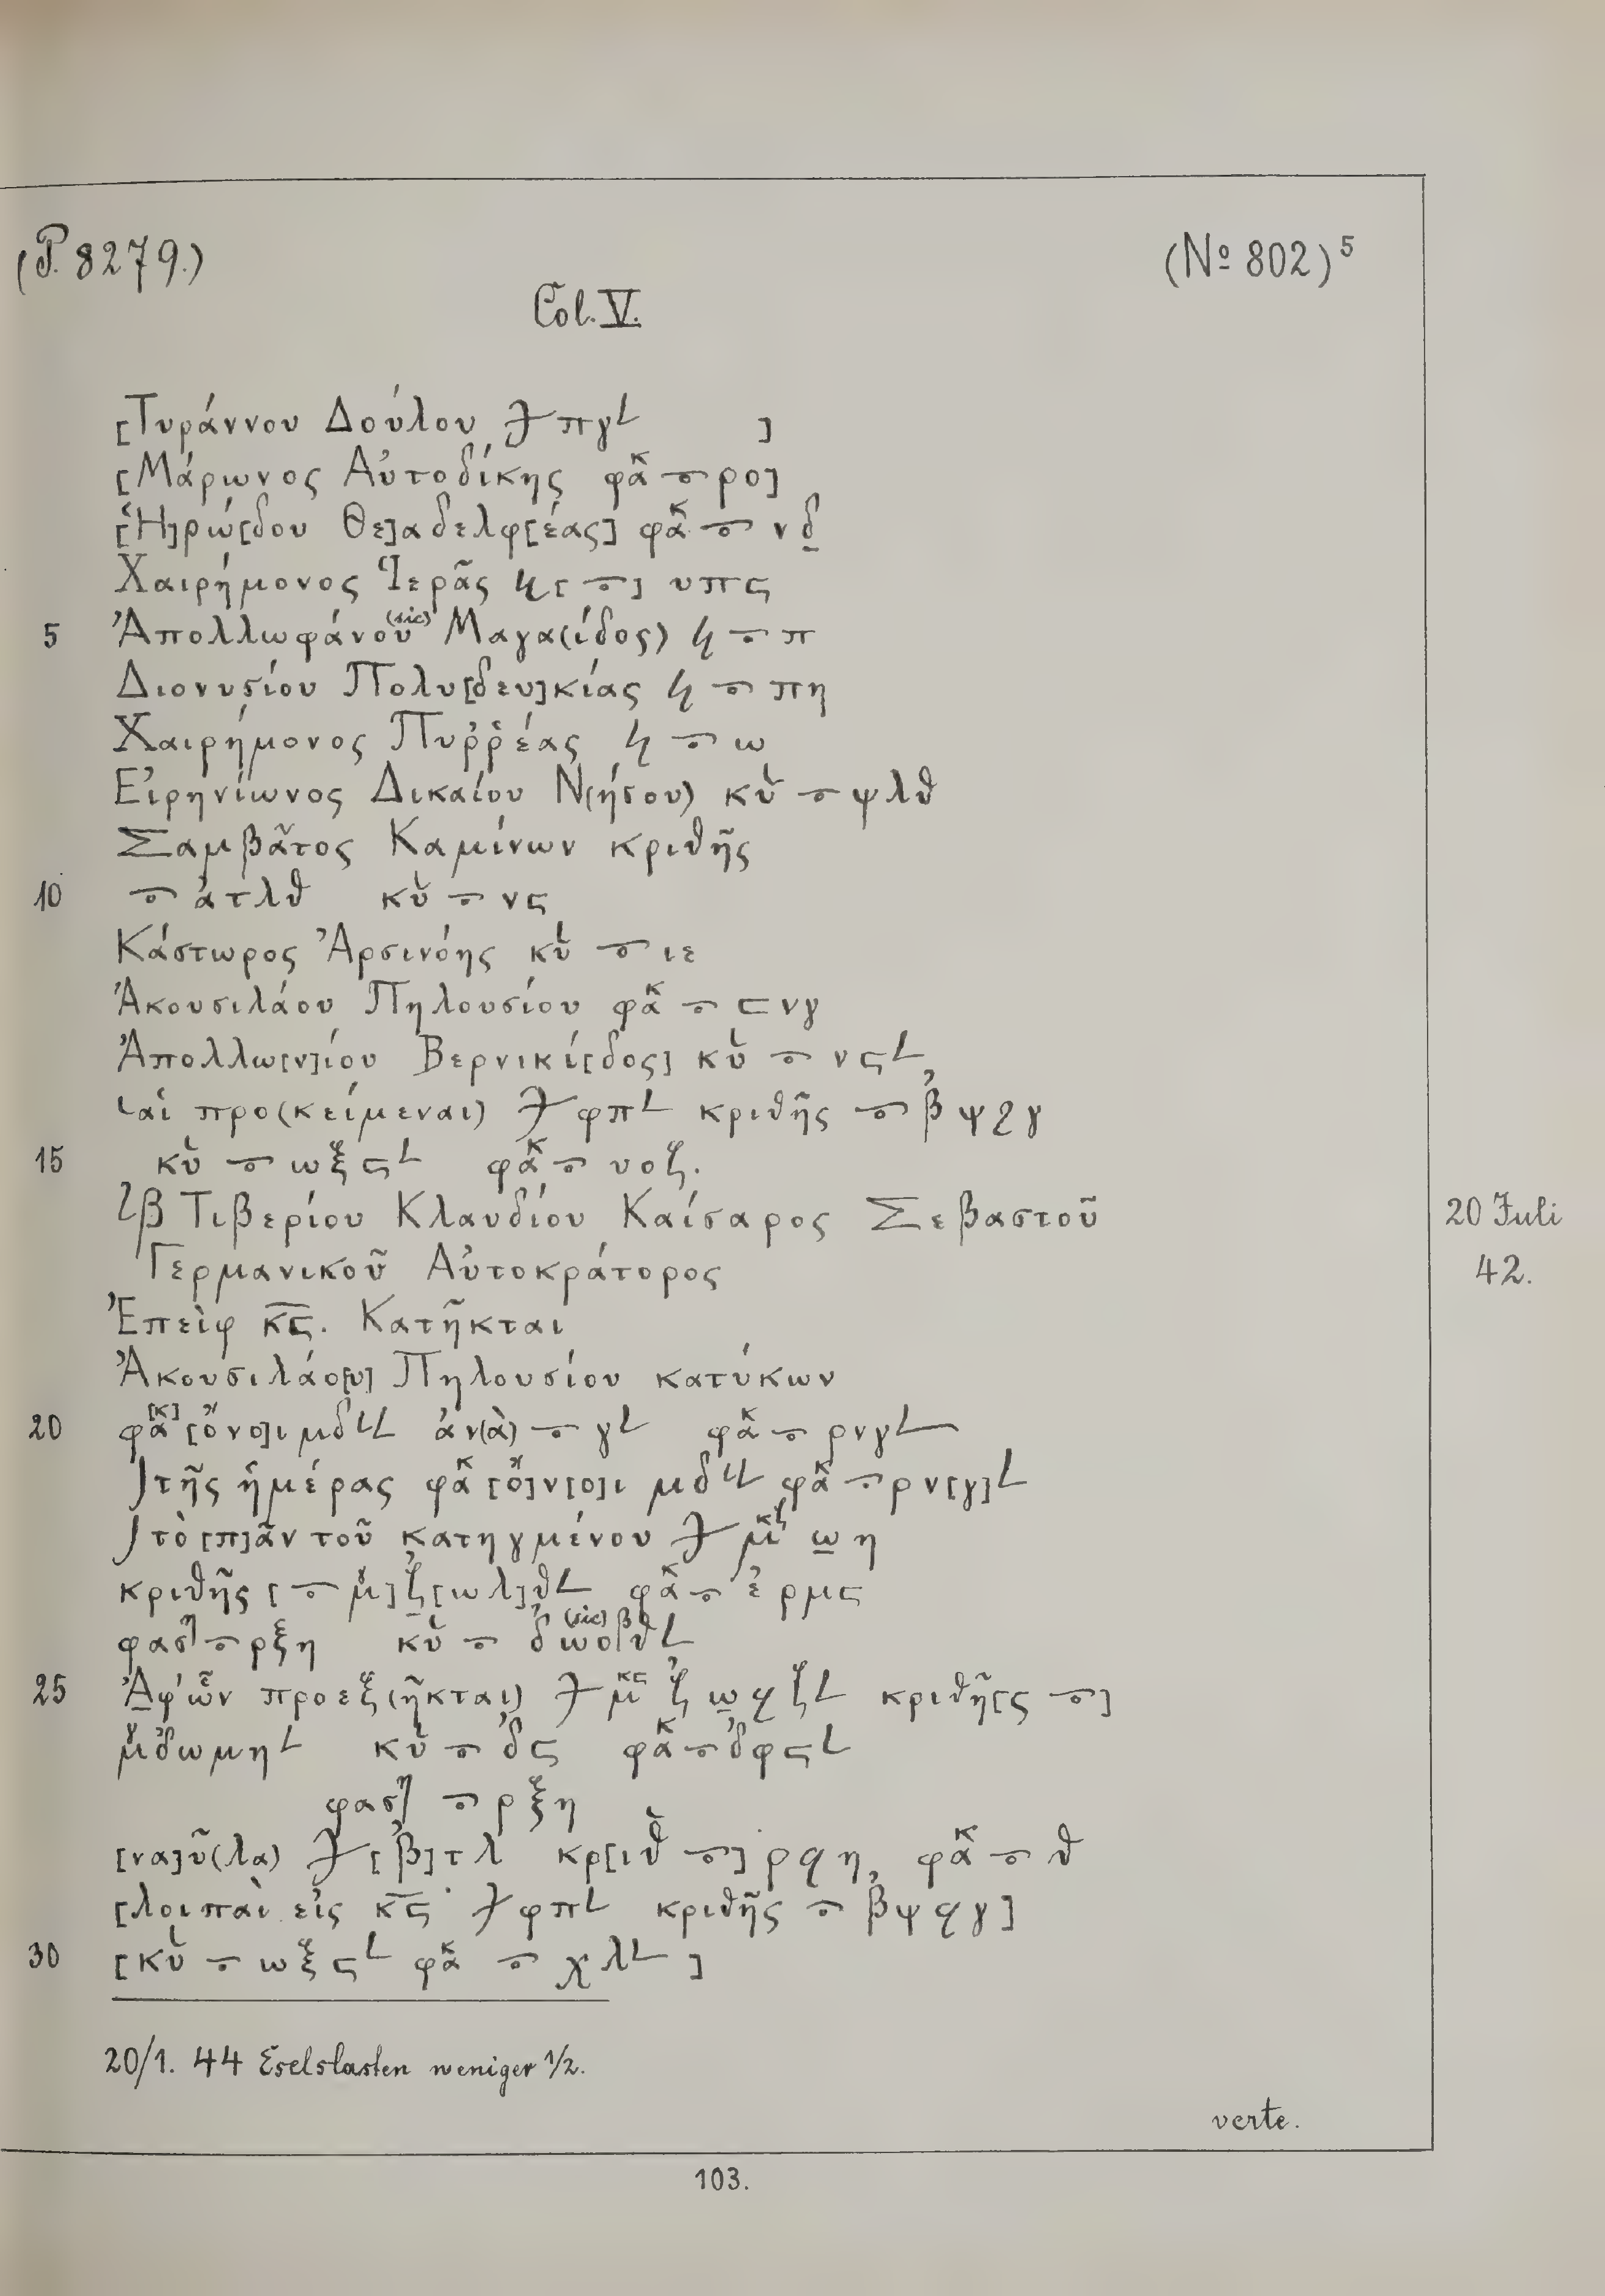 (P. 8279.)
(№ 802)⁵
Col. V.
[Τυράννου Δούλου 𐅵 πγ𐅵 ]
[Μάρωνος Αὐτοδίκης φακ 𐆎 ρο]
[Ἡ]ρώ[δου Θε]αδελφ[έας] φακ 𐆎 νδ̣
Χαιρήμονος Ἱερᾶς [ ] υπϛ
5 Ἀπολλωφάνου (sic) Μαγα(ίδος) π
Διονυσίου Πολυ[δευ]κίας πη
Χαιρήμονος Πυῤῥέας ω
Εἰρηνίωνος Δικαίου Ν(ήσου) κυ ψλθ
Σαμβᾶτος Καμίνων κριθῆς
10 ͵ατλθ κυ νϛ
Κάστωρος Ἀρσινόης κυ ιε
Ἀκουσιλάου Πηλουσίου φακ ϛνγ
Ἀπολλω[ν]ίου Βερνικί[δος] κυ νϛ
αἱ προ(κείμεναι) φπ κριθῆς ͵βψϙγ
15 κυ ωξϛ φακ υοζ.
β Τιβερίου Κλαυδίου Καίσαρος Σεβαστοῦ
20 Juli
42.
Γερμανικοῦ Αὐτοκράτορος
Ἐπεὶφ κϛ. Κατῆκται
Ἀκουσιλάο[υ] Πηλουσίου κατύκων
20 φα[κ] [ὄνο]ι μδ ἀν(ὰ) γ φακ ρνγ
τῆς ἡμέρας φακ [ὄ]ν[ο]ι μδ φακ ρν[γ]
τὸ [π]ᾶν τοῦ κατηγμένου ω̣η
κριθῆς [ ] ζ[ωλ]θ φακ ͵ερμϛ
φαση ρξη κυ (sic)
25 Ἀφ' ὧν προεξ(ῆκται) ζωϙζ κριθῆ[ς ]
δωμη κυ ͵δϛ φακ ͵δφϛ
φαση ρξη
[να]ῦ(λα) [͵β]τλ κρ[ιθ ] ρϙη, φακ θ
[λοιπαὶ εἰς κϛ φπ κριθῆς ͵βψϙγ]
30 [κυ ωξϛ φακ χλ ]
20/1. 44 Eselslasten weniger ½.
verte.
103.